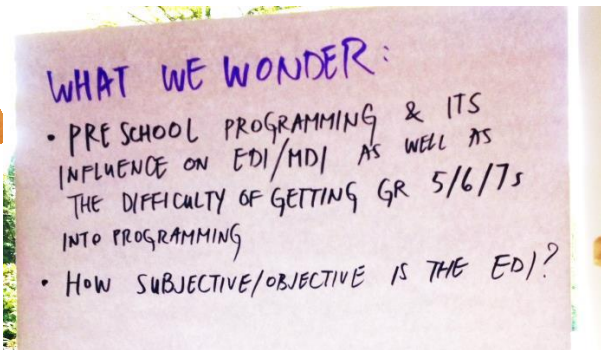 WHAT WE WONDER:
• PRE SCHOOL PROGRAMMING & ITS
INFLUENCE ON EDI/MDI AS WELL AS
THE DIFFICULTY OF GETTING GR 5/6/7s
INTO PROGRAMMING
• HOW SUBJECTIVE/OBJECTIVE IS THE EDI?